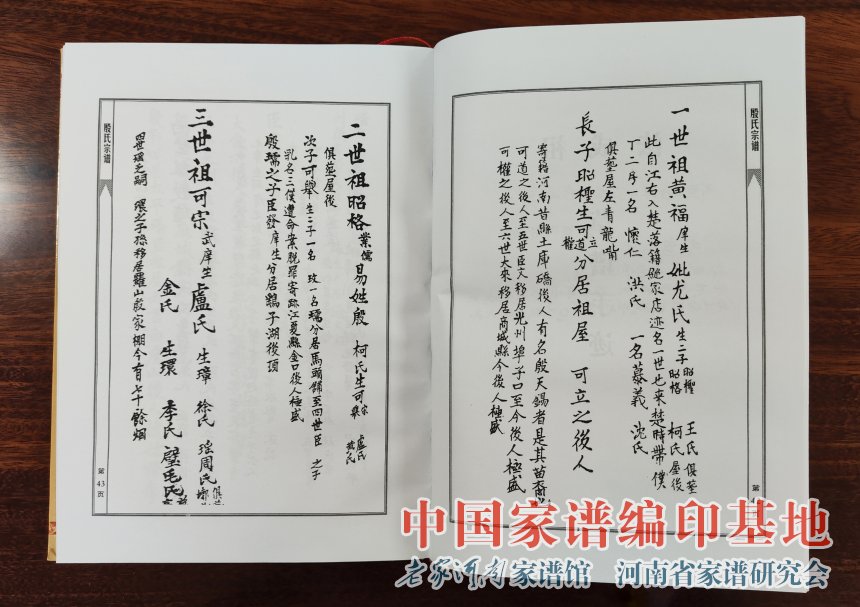 殷氏宗谱
一世祖黄福庠生妣尤氏生二子昭樫昭格 王氏俱塟柯氏屋後
此自江右入楚落籍姚家店迹名一世也来楚時带僕
丁二序一名懷仁 洪氏 一名慕義 沈氏
俱塟屋左青龍嘴
長子昭樫生可立道權分居祖屋 可立之後人
寄籍河南昔縣土庫礄後人有名殷天錫者是其苗裔
可道之後人至五世臣文移居光州埠子口至今後人極盛
可權之後人至六世大来移居商城縣今後人極盛
殷氏宗谱
二世祖昭格業儒易姓殷 柯氏生可宗 盧氏
俱塟屋後
次子可舉生二子一名玫一名瓀分居馬頭鋪至四世臣之子
乳名三僕遭命案脱罪寄跡江夏縣金口後人極盛
殷瓀之子臣發庠生分居鵝子湖後頂
三世祖可宗武庠生盧氏 生璋 徐氏 瑶周氏
金氏 生環 李氏 壁毛氏
四世瑶之嗣 環之子孫移居羅山殷家棚今有七十餘烟
第43页
中国家谱编印基地
老家河南家谱馆 河南省家谱研究会